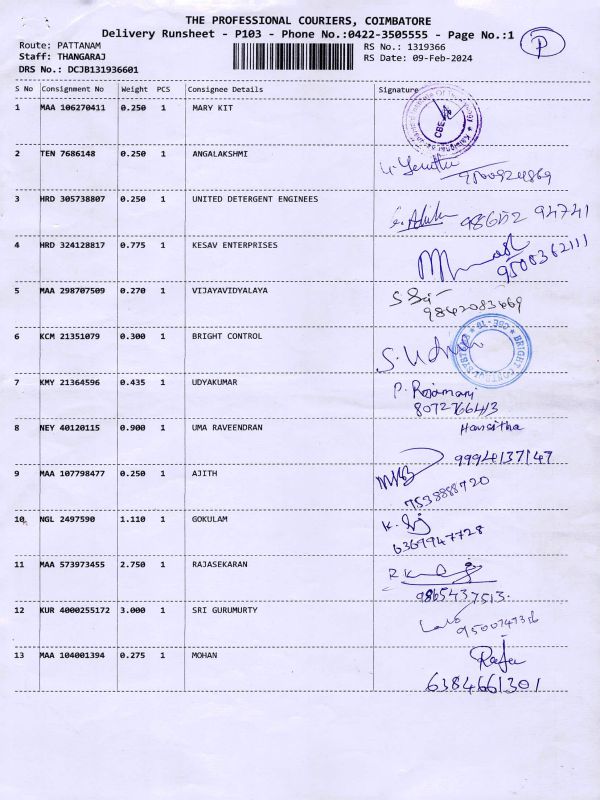 THE PROFESSIONAL COURIERS, COIMBATORE
Delivery Runsheet - P103 - Phone No.:0422-3505555 - Page No.:1
P
Route: PATTANAM
RS No.: 1319366
Staff: THANGARAJ
RS Date: 09-Feb-2024
DRS No.: DCJB131936601
S No Consignment No Weight PCS Consignee Details Signature
1 MAA 106270411 0.250 1 MARY KIT
CBE
2 TEN 7686148 0.250 1 ANGALAKSHMI
9500924869
3 HRD 305738807 0.250 1 UNITED DETERGENT ENGINEES
94741
4 HRD 324128817 0.775 1 KESAV ENTERPRISES
9500362111
5 MAA 298707509 0.270 1 VIJAYAVIDYALAYA
9842083469
6 KCM 21351079 0.300 1 BRIGHT CONTROL
BRIGHT CONTROL SYSTEMS
7 KMY 21364596 0.435 1 UDYAKUMAR
P. Rajamani
8072766413
8 NEY 40120115 0.900 1 UMA RAVEENDRAN
Hansitha
9994137147
9 MAA 107798477 0.250 1 AJITH
7538888720
10 NGL 2497590 1.110 1 GOKULAM
6369947728
11 MAA 573973455 2.750 1 RAJASEKARAN
9865437513
12 KUR 4000255172 3.000 1 SRI GURUMURTY
13 MAA 104001394 0.275 1 MOHAN
6384661301